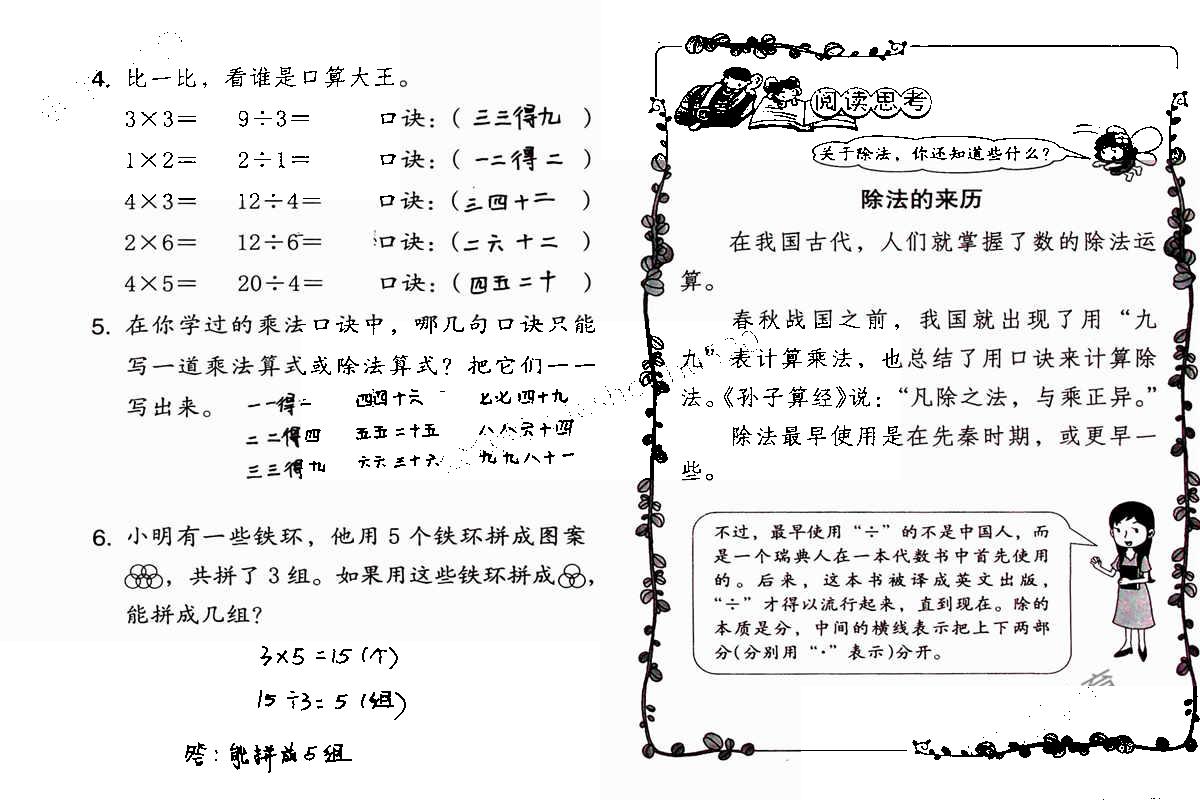 4. 比一比，看谁是口算大王。
3×3=　9÷3=　口诀：（三三得九）
1×2=　2÷1=　口诀：（一二得二）
4×3=　12÷4=　口诀：（三四十二）
2×6=　12÷6=　口诀：（二六十二）
4×5=　20÷4=　口诀：（四五二十）
5. 在你学过的乘法口诀中，哪几句口诀只能
写一道乘法算式或除法算式？把它们一一
写出来。
一一得一　四四十六　七七四十九
二二得四　五五二十五　八八六十四
三三得九　六六三十六　九九八十一
6. 小明有一些铁环，他用5个铁环拼成图案
，共拼了3组。如果用这些铁环拼成，
能拼成几组？
3×5=15（个）
15÷3=5（组）
答：能拼成5组
阅读思考
关于除法，你还知道些什么？
除法的来历
在我国古代，人们就掌握了数的除法运
算。
春秋战国之前，我国就出现了用“九
九”表计算乘法，也总结了用口诀来计算除
法。《孙子算经》说：“凡除之法，与乘正异。”
除法最早使用是在先秦时期，或更早一
些。
不过，最早使用“÷”的不是中国人，而
是一个瑞典人在一本代数书中首先使用
的。后来，这本书被译成英文出版，
“÷”才得以流行起来，直到现在。除的
本质是分，中间的横线表示把上下两部
分（分别用“·”表示）分开。